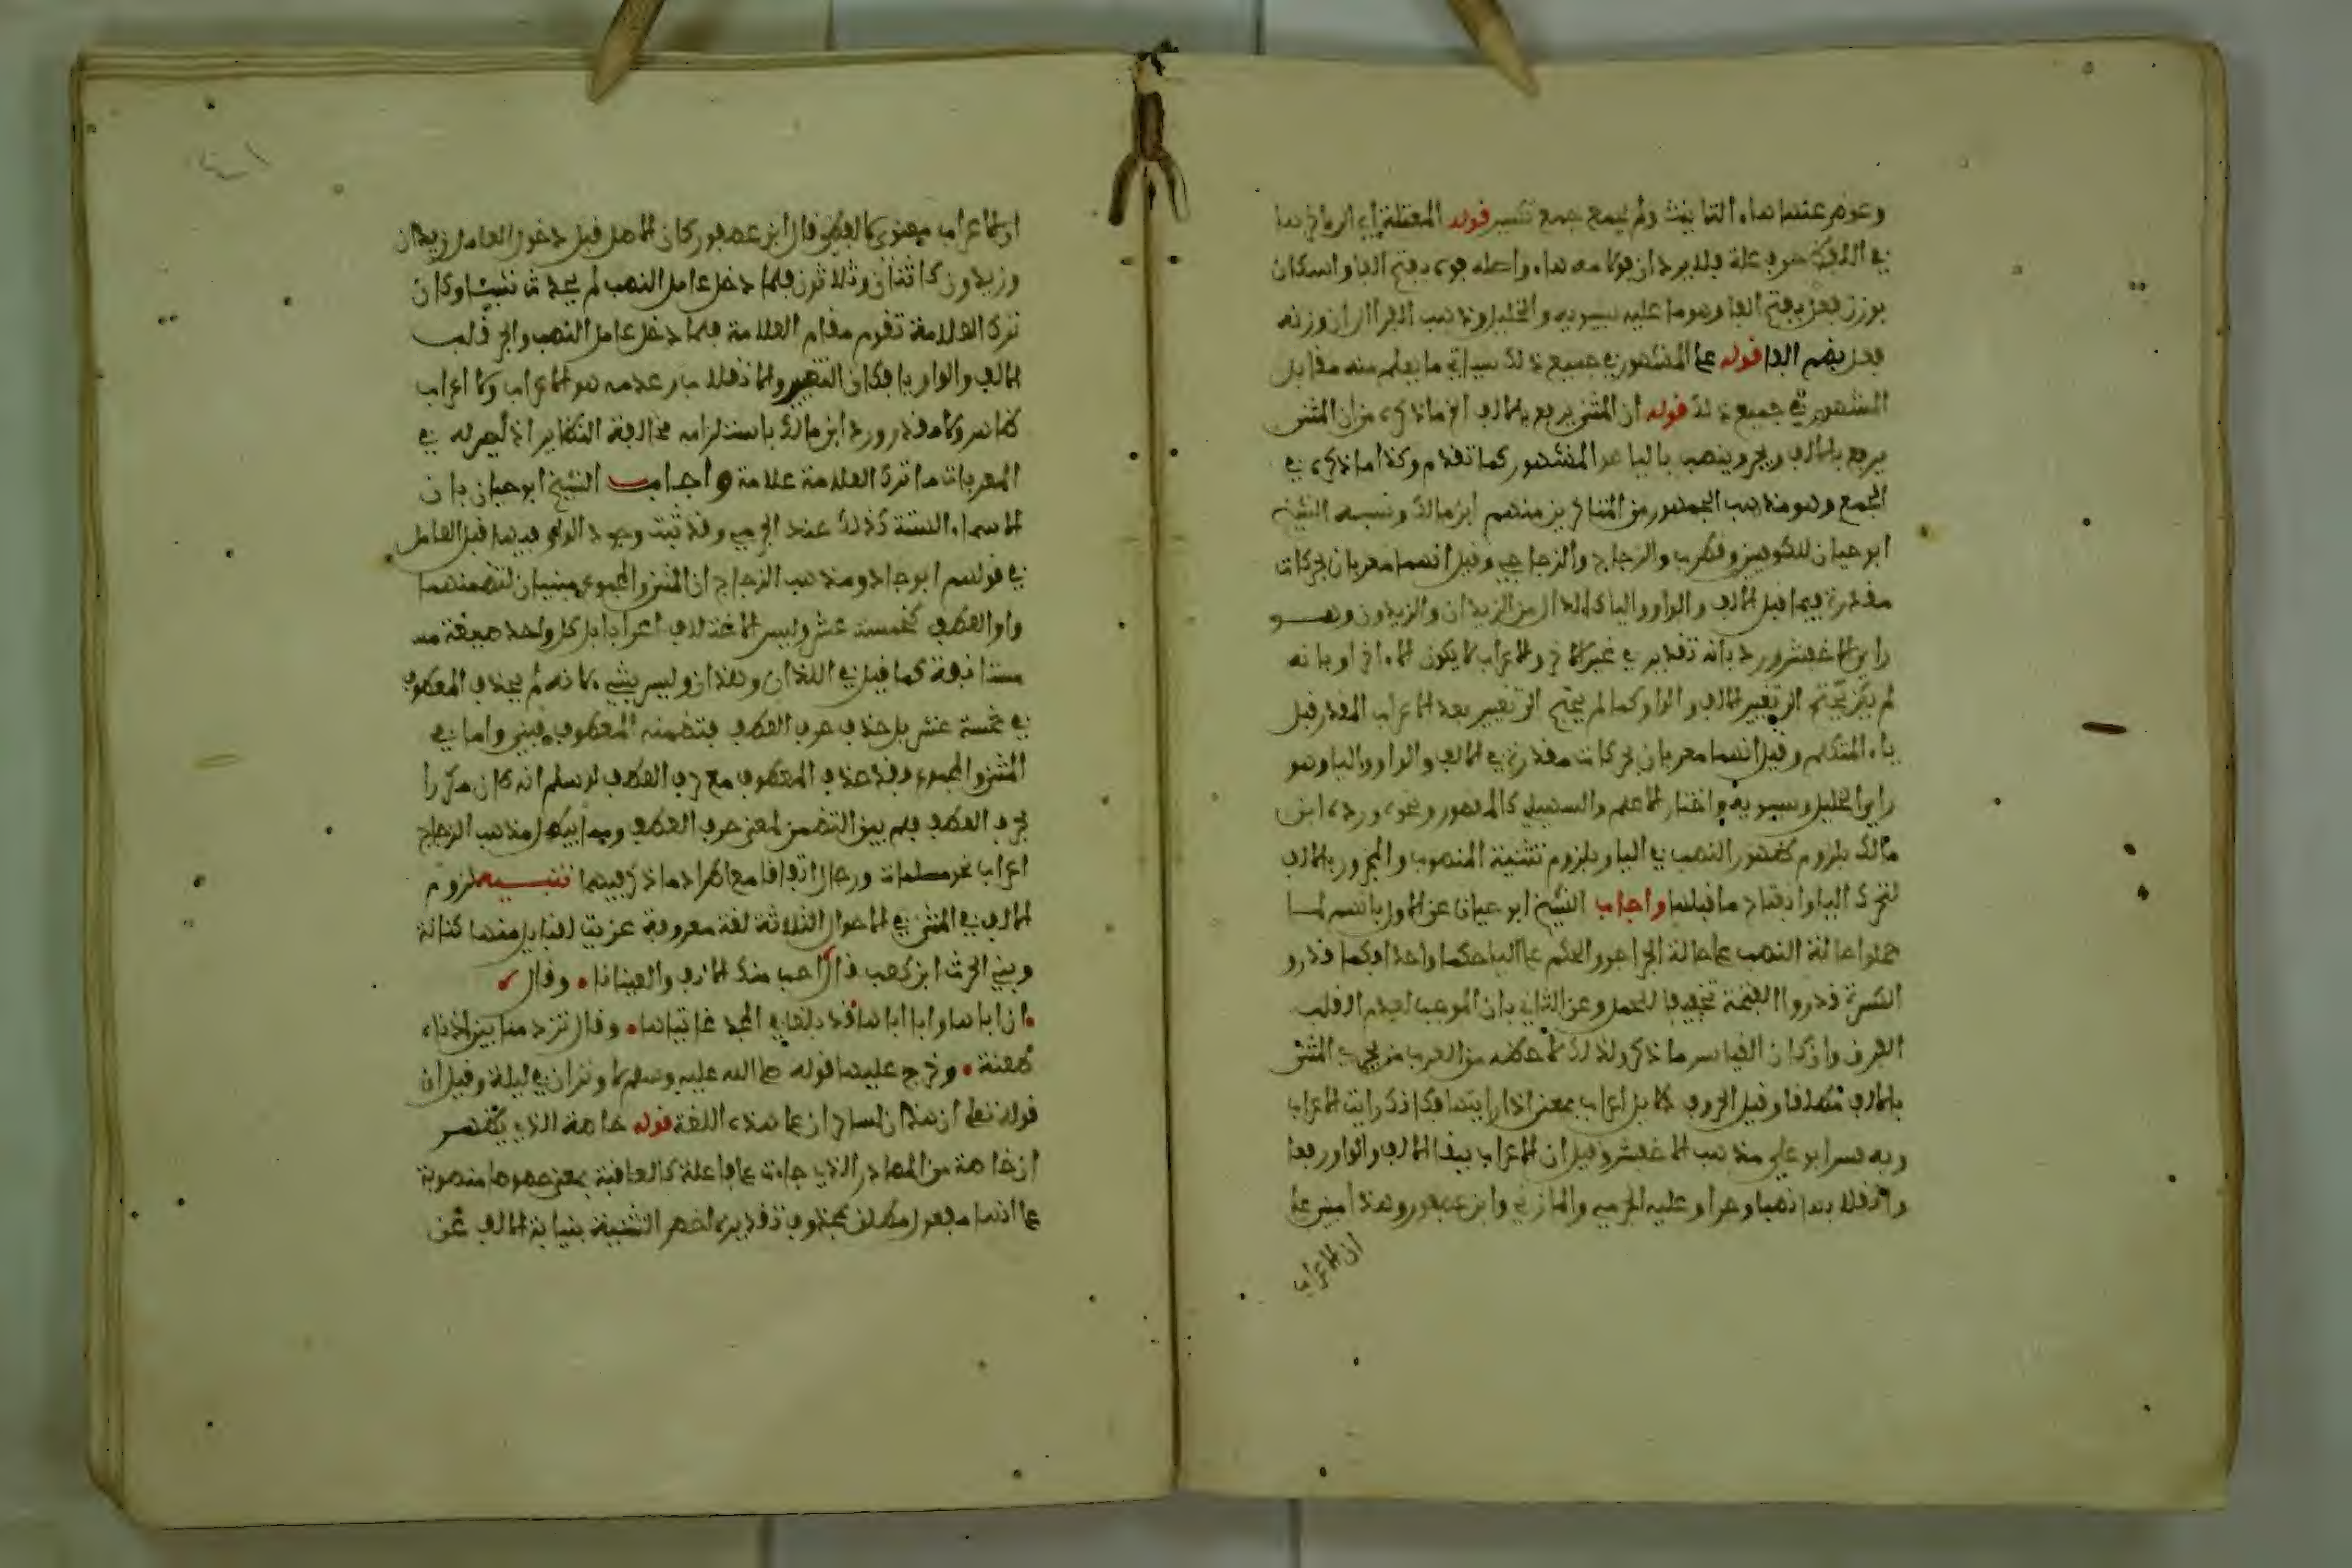 وعوض عنها هاء التانيث ولم يجمع جمع تكسير قوله المعتلة اي الرماخرها
في اللفظ حرف علة فلا يرد ان فوك منه هاء واصله فوه بفتح الفا واسكان
بوزن فعل بفتح الفا وهو ما عليه سيبويه والخليل وذهب الفرا الى ان وزنه
فعل بضم الفا قوله على المشهور في جميع ذلك سياتي ما يعلم منه مقابل
المشهور في جميع ذلك قوله ان المثنى يرفع بالالف الخ ما ذكره من ان المثنى
يرفع بالالف ويجر وينصب بالياء هو المشهور كما تقدم وكذا ما ذكره في
الجمع وهو مذهب الجمهور من المتاخرين منهم ابن مالك ونسبه الشيخ
ابو حيان للكوفيين وقطرب والزجاج والزجاجي وقيل انهما معربان بحركات
مقدرة فيما قبل الالف والواو والياء كالدال من الزيدان والزيدون وهو
راي الاخفش ورد بانه تقدير في غير الاخر والاعراب لا يكون الا اخرا وبانه
لم يكن يحتج الى تغيير الالف والواو كما لم يحتج الى تغيير بعد الاعراب المقدر قبل
ياء المتكلم وقيل انهما معربان بحركات مقدرة في الالف والواو والياء وهو
راي الخليل وسيبويه واختار الاعلم والسهيلي كالمقصور ونحوه ورده ابن
مالك بلزوم ظهور النصب في الياء وبلزوم تثنية المنصوب والمجرور بالالف
لتحرك الياء وانفتاح ما قبلها واجاب الشيخ ابو حيان عن الاول بانهم لما
حملوا حالة النصب على حالة الجر اجروا الحكم على الياء حكما واحدا فكما قدروا
الكسرة قدروا الفتحة تحقيقا للحمل وعن الثاني بان الموجب لعدم القلب
الفرق وان كان القياس ما ذكر ولذلك لاحظه من العرب من يجري المثنى
بالالف مطلقا وقيل الحروف دلايل اعراب بمعنى اذا رايتها فكانك رايت الاعراب
وبه فسر ابو علي مذهب الاخفش وقيل ان الاعراب ببقا الالف والواو رفعا
وانقلابهما نصبا وجرا وعليه الجرمي والمازني وابن عصفور وهذا مبني على
ان الاعراب
اولا اعراب معنوي كالعطف قال ابن عصفور كان الاصل قبل دخول العامل زيدان
وزيدون كاثنان وثلاثون فلما دخل عامل النصب لم يحدث شيئا وكان
ترك العلامة تقوم مقام العلامة فلما دخل عامل النصب والجر قلب
الالف والواو يا فكان التغيير والانقلاب او عدمه هو الاعراب ولا اعراب
ظاهر ولا مقدر ورد ابن مالك باستلزامه مخالفة النظاير اذ ليس له في
المعربات ما ترك العلامة علامة واجاب الشيخ ابو حيان بان
الاسماء الستة كذلك عند الجرمي وقد ثبت وجود الواو فيها قبل العامل
في قولهم ابو جاد ومذهب الزجاج ان المثنى والمجموع مبنيان لتضمنهما
واو العطف كخمسة عشر وليس الاختلاف اعرابا بل كل واحد صيغة
مستانفة كما قيل في اللذان وهذان وليس بشيء لانه لم يحذف المعطوف
في خمسة عشر بل حذف حرف العطف فتضمنه المعطوف فبني واما في
المثنى والمجموع فقد حذف المعطوف مع حرف العطف لو سلم انه كان مكررا
بحرف العطف فلم يبق التضمن لمعنى حرف العطف ومما يبطل مذهب الزجاج
اعراب نحو مسلمات ورجال اتفاقا مع اطراد ما ذكر فيهما تنبيه لزوم
الالف في المثنى في الاحوال الثلاثة لغة معروفة عزيت لقبايل منها كنانة
وبني الحرث ابن كعب قال احب منك الانف والعينانا وقال
ان اباها وابا اباها قد بلغا في المجد غايتاها وقال تزود منا بين اذناه
طعنة وخرج عليها قوله صلى الله عليه وسلم لا وتران في ليلة وقيل ان
قوله تعالى ان هذان لساحران على هذه اللغة قوله خاصة الذي يظهر
ان خاصة من المصادر الذي جاءت على فاعلة كالعافية بمعنى خصوصا منصوبة
على انها مفعول مطلق بمحذوف تقديره اخص التثنية بنيابة الالف عن